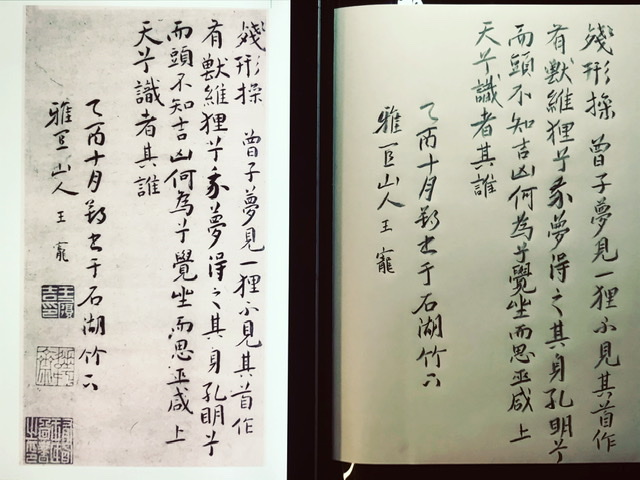 殘形操 曾子夢見一狸不見其首作
有獸維狸兮我夢得之其身孔明兮
而頭不知吉凶何為兮覺坐而思巫咸上
天兮識者其誰
乙酉十月 書于石湖竹下
雅宜山人王寵
王履吉印
殘形操 曾子夢見一狸不見其首作
有獸維狸兮我夢得之其身孔明兮
而頭不知吉凶何為兮覺坐而思巫咸上
天兮識者其誰
乙酉十月 書于石湖竹下
雅宜山人王寵